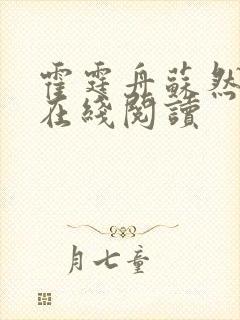 霍霆舟蘇然
在綫閱讀
月七童